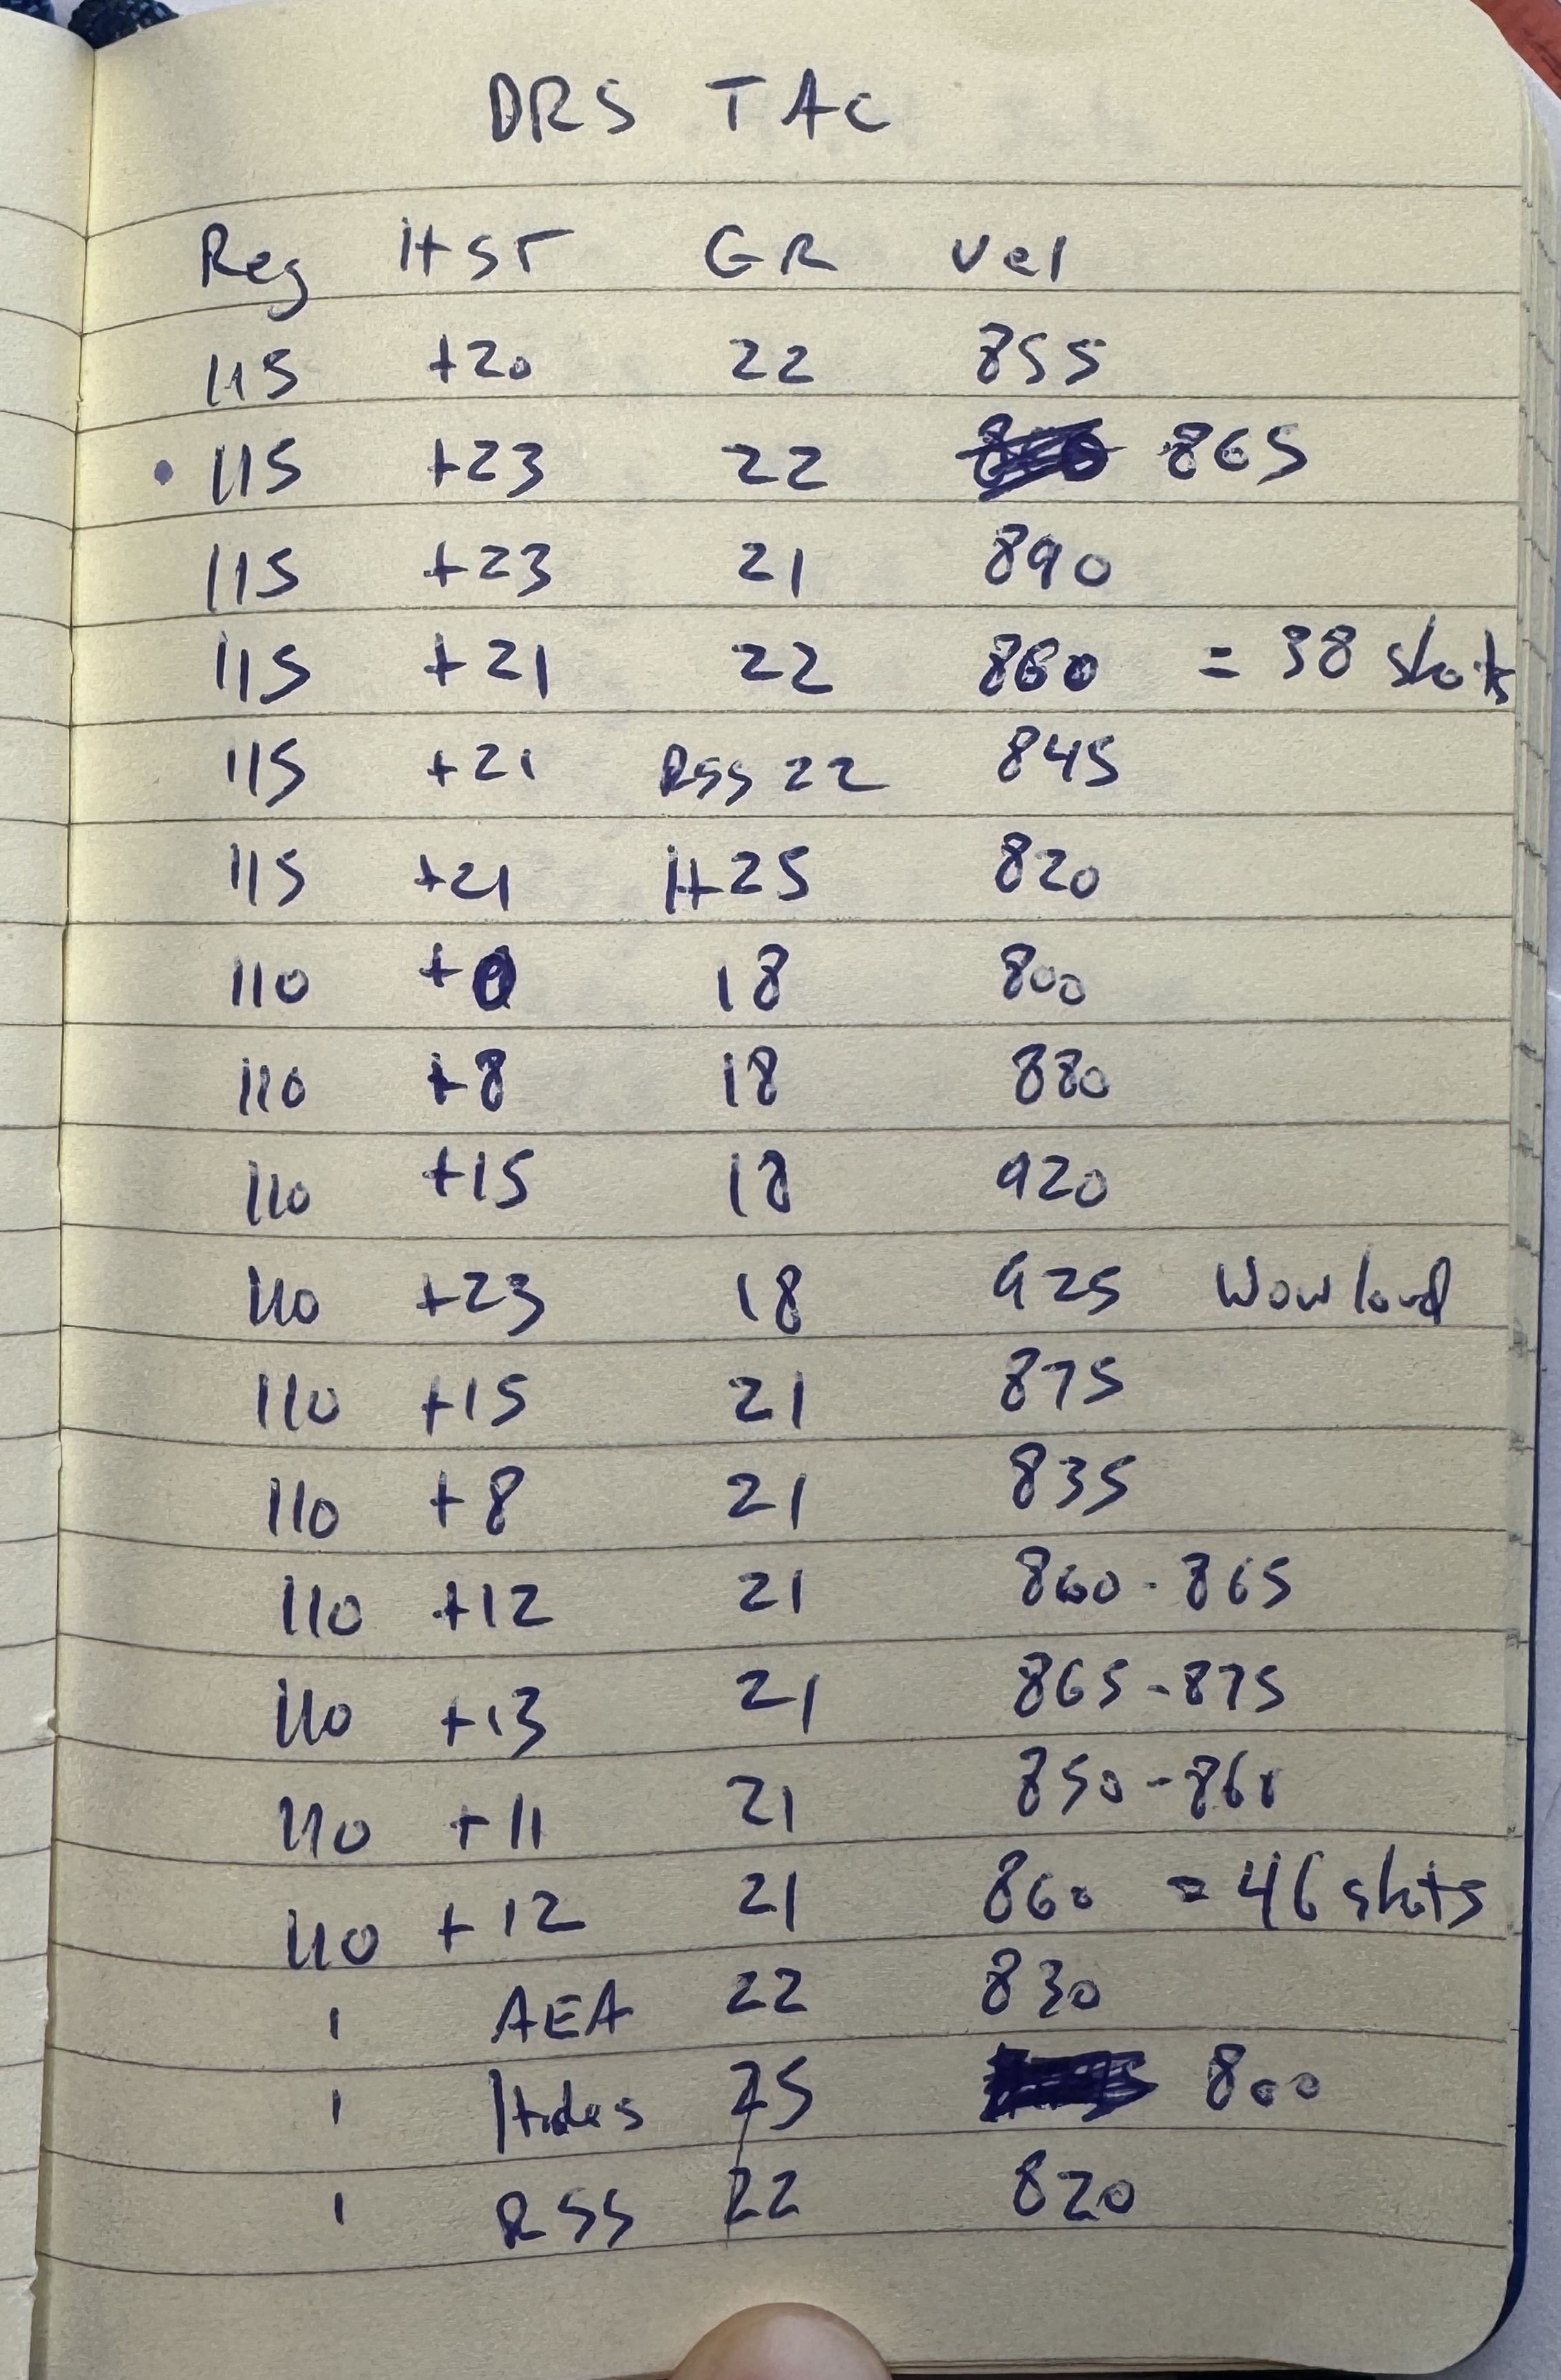 DRS TAC
Reg HST GR Vel
115 +20 22 855
• 115 +23 22 865
115 +23 21 890
115 +21 22 860 = 38 shots
115 +21 RSS 22 845
115 +21 H 25 820
110 +0 18 800
110 +8 18 880
110 +15 18 920
110 +23 18 925 Wow loud
110 +15 21 875
110 +8 21 835
110 +12 21 860 - 865
110 +13 21 865 - 875
110 +11 21 850 - 860
110 +12 21 860 = 46 shots
ı AEA 22 830
ı Hades 25 800
ı RSS 22 820